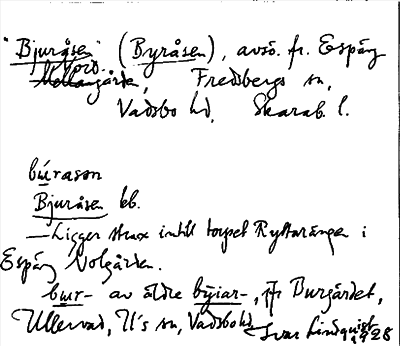 "Bjuråsen" (Byråsen), avsö. fr. Espäng
Nord
Mellangården, Fredsbergs sn,
Vadsbo hd, Skarab. l.
búrasən
Bjuråsen eb.
— Ligger strax intill torpet Ryttarängen i
Espäng Nolgården.
bur- av äldre býiar-, jfr Burgärdet,
Ullervad, U's sn, Vadsbo hd
Ivar Lindquist
1928